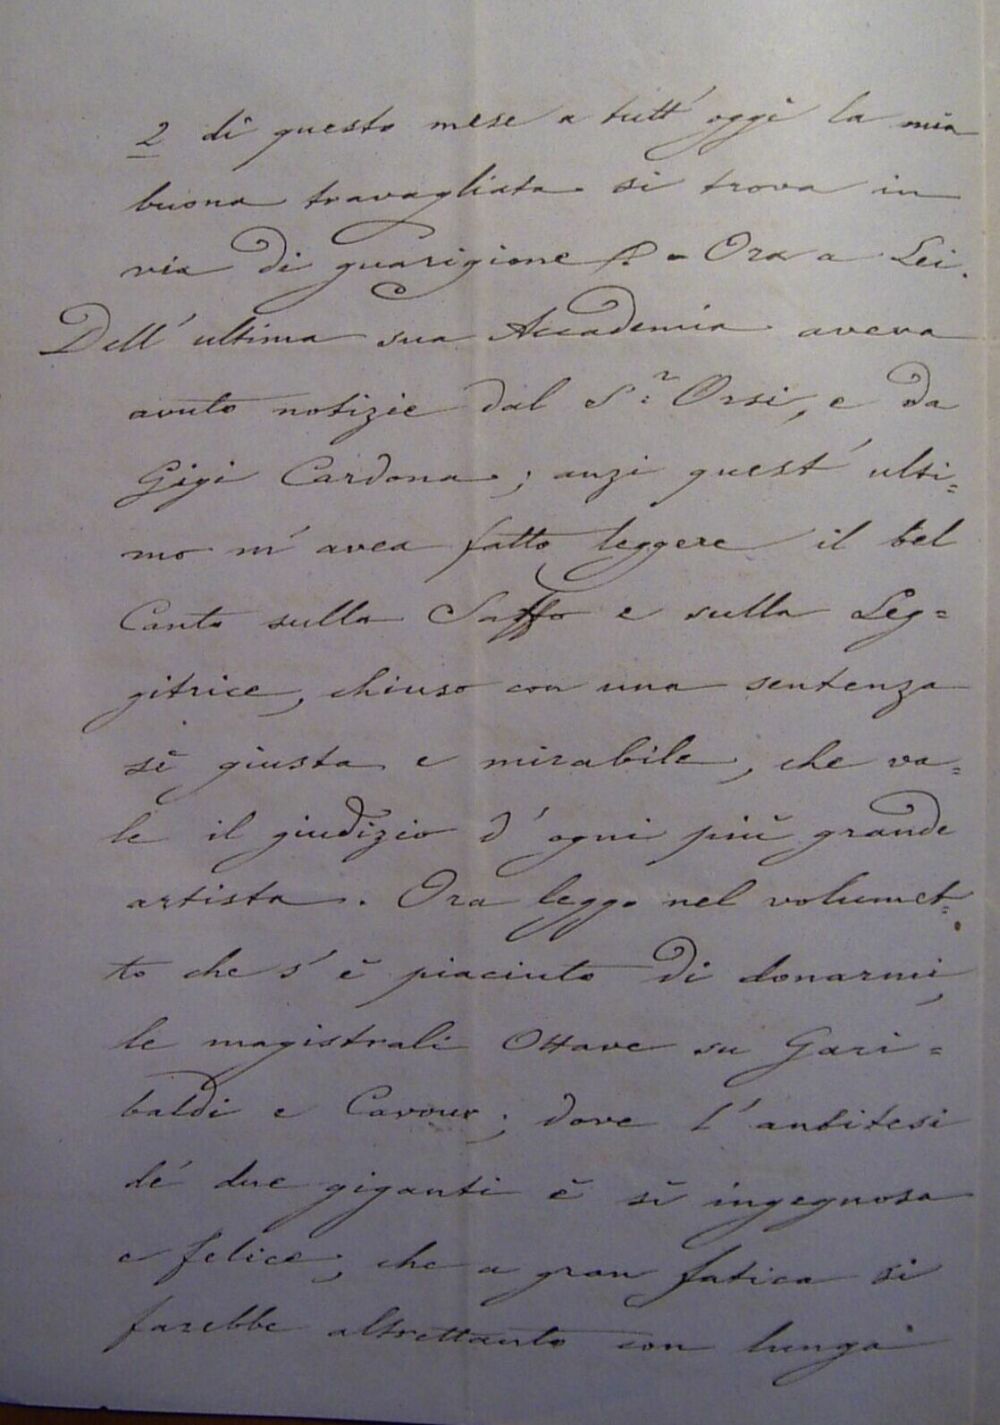 2 di questo mese a tutt' oggi la mia
buona travagliata si trova in
via di guarigione. - Ora a Lei.
Dell' ultima sua Accademia aveva
avuto notizie dal S.r Orsi, e da
Gigi Cardona; anzi quest' ulti=
mo m' avea fatto leggere il bel
Canto sulla Saffo e sulla Leg=
gitrice, chiuso con una sentenza
sì giusta e mirabile, che va=
le il giudizio d' ogni più grande
artista. Ora leggo nel volumet=
to che s' è piaciuto di donarmi,
le magistrali Ottave su Gari=
baldi e Cavour; dove l' antitesi
de' due giganti è sì ingegnosa
e felice, che a gran fatica si
farebbe altrettanto con lungo